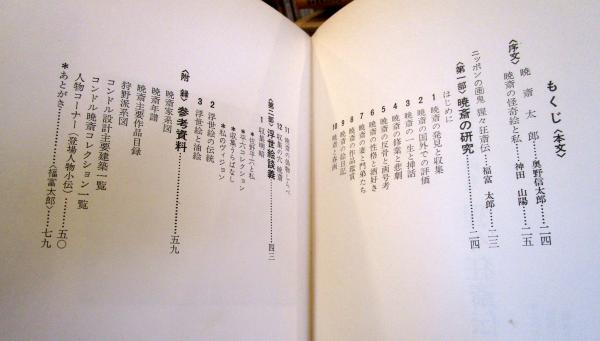 もくじ〈本文〉
〈序文〉
暁斎太郎……奥野信太郎…二四
暁斎の怪奇絵と私…神田山陽…二五
ニッポンの画鬼 猩々狂斎伝……福富太郎…二三
〈第一部〉暁斎の研究……………二四
はじめに
1 暁斎の発見と収集
2 暁斎の国外での評価
3 暁斎の一生と挿話
4 暁斎の修業と悲劇
5 暁斎の反骨と画号考
6 暁斎の性格と酒好き
7 暁斎の妻と門弟たち
8 暁斎の作品鑑賞
9 暁斎の絵日記
10 暁斎と春画
11 暁斎の偽物しらべ
〈第二部〉浮世絵談義……………四三
1 収集明略
*吉野平六と私
*平六コレクション
*収集うらばなし
*私のヴィジョン
2 浮世絵の伝統
3 浮世絵と油絵
〈附録〉参考資料……………五九
暁斎家系図
暁斎年譜
暁斎主要作品目録
狩野派系図
コンドル設計主要建築一覧
コンドル暁斎コレクション一覧
人物コーナー(登場人物小伝)…五〇
*あとがき……〈福富太郎〉…七九